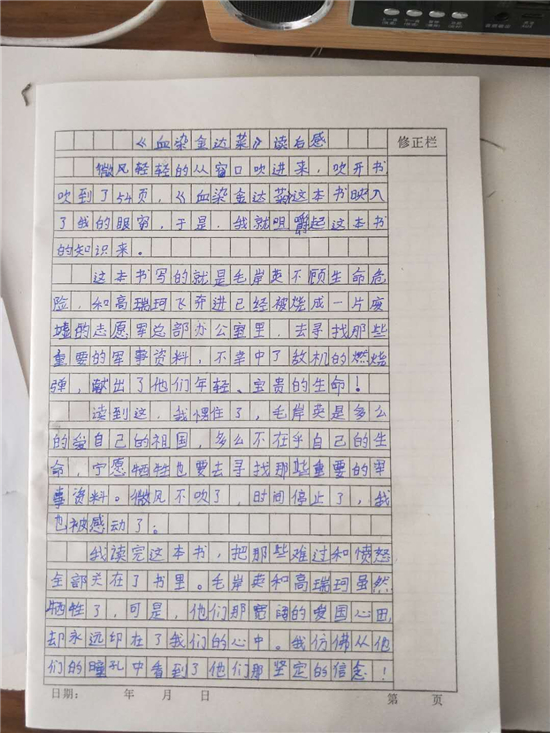 《血染金达莱》读后感
修正栏
微风轻轻的从窗口吹进来，吹开书
吹到了54页，《血染金达莱》这本书映入
了我的眼帘，于是，我就咀嚼起这本书
的知识来。
这本书写的就是毛岸英不顾生命危
险，和高瑞珂飞奔进已经被烧成一片废
墟的志愿军总部办公室里，去寻找那些
重要的军事资料，不幸中了敌机的燃烧
弹，献出了他们年轻、宝贵的生命！
读到这，我愣住了，毛岸英是多么
的爱自己的祖国，多么不在乎自己的生
命，宁愿牺牲也要去寻找那些重要的军
事资料。微风不吹了，时间停止了，我
也被感动了。
我读完这本书，把那些难过和愤怒
全部关在了书里。毛岸英和高瑞珂虽然
牺牲了，可是，他们那宽阔的爱国心田，
却永远印在了我们的心中。我仿佛从他
们的瞳孔中看到了他们那坚定的信念！
日期： 年 月 日 第 页